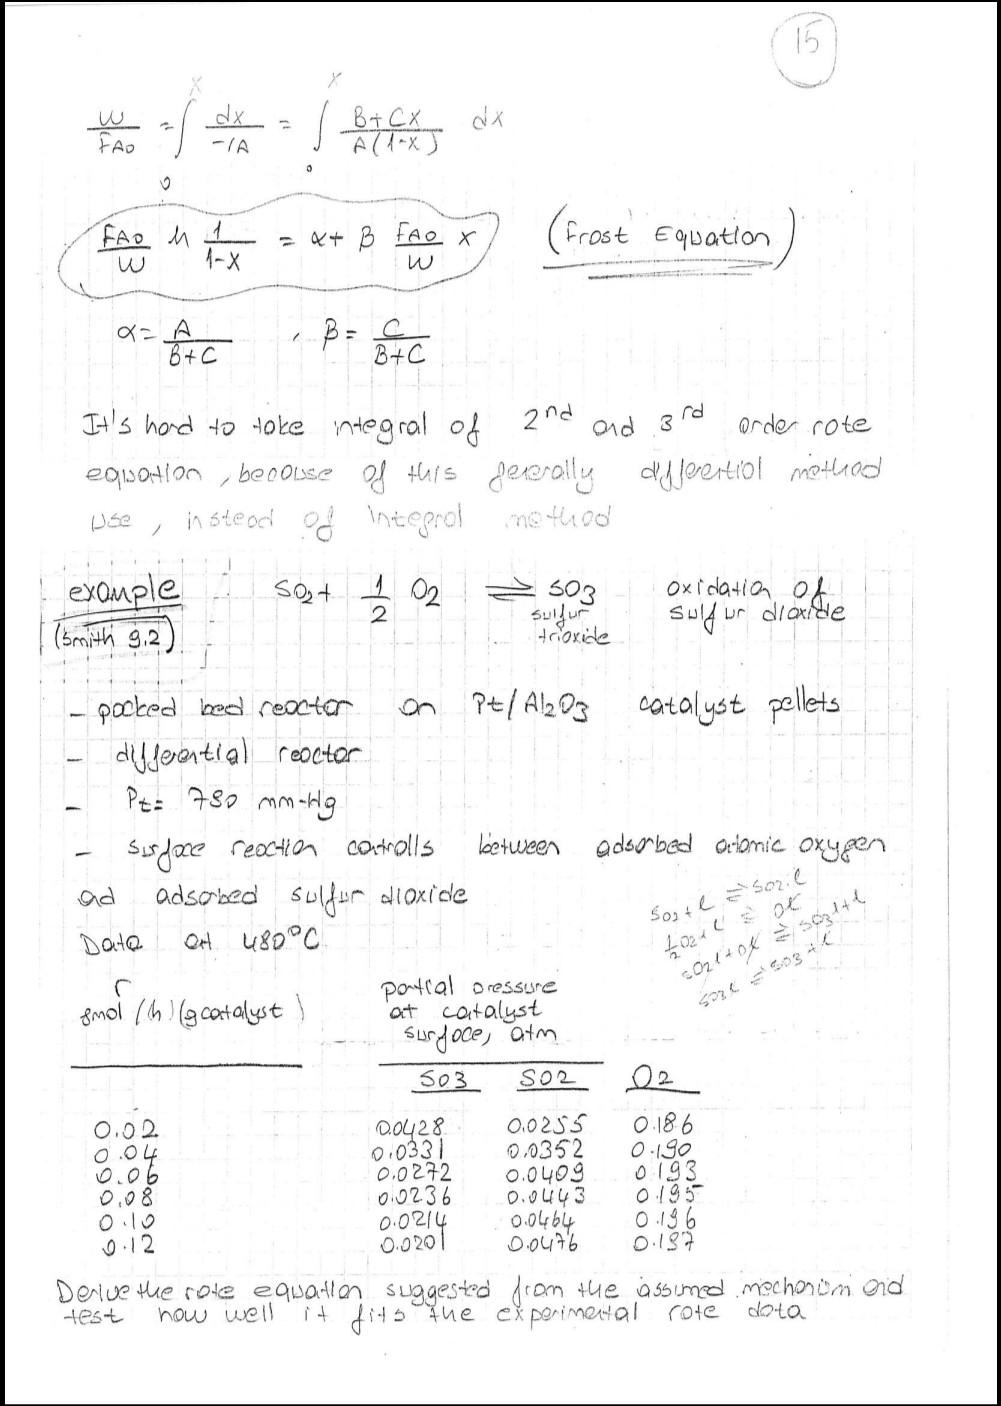 15
W/FAO = ∫₀ˣ dx/-rA = ∫₀ˣ B+CX/A(1-X) dx
FAO/W ln 1/1-X = α + β FAO/W X (Frost Equation)
α = A/B+C , β = C/B+C
It's hard to take integral of 2nd and 3rd order rate
equation, because of this generally differential method
use, instead of integral method
example SO2 + 1/2 O2 ⇌ SO3 oxidation of
sulfur trioxide sulfur dioxide
(Smith 9.2)
- packed bed reactor on Pt/Al2O3 catalyst pellets
- differential reactor
- Pt = 790 mm-Hg
- surface reaction controlls between adsorbed atomic oxygen
and adsorbed sulfur dioxide
SO2+l ⇌ SO2.l
1/2O2+l ⇌ Ol
SO2l+Ol ⇌ SO3l+l
SO3l ⇌ SO3+l
Data at 480°C
r
gmol/(h)(g catalyst)
partial pressure
at catalyst
surface, atm
SO3 SO2 O2
0.02 0.0428 0.0255 0.186
0.04 0.0331 0.0352 0.190
0.06 0.0272 0.0409 0.193
0.08 0.0236 0.0443 0.195
0.10 0.0214 0.0464 0.196
0.12 0.0201 0.0476 0.197
Derive the rate equation suggested from the assumed mechanism and
test how well it fits the experimental rate data